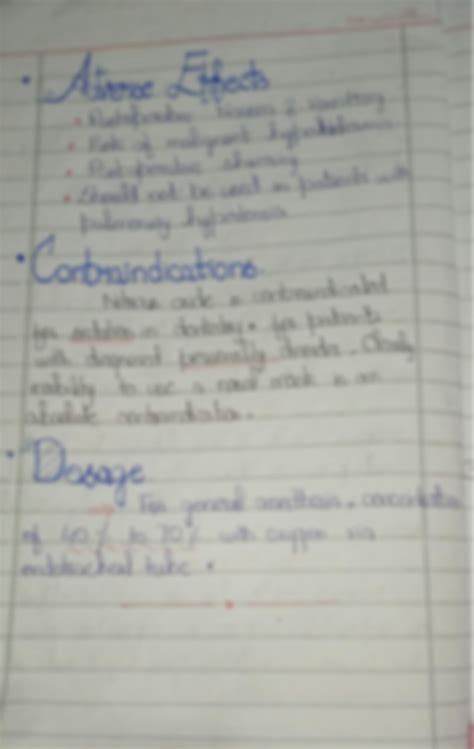 Adverse Effects
Postoperative Nausea & vomiting
Risk of malignant hyperthermia
Post-operative shivering
Should not be used in patients with
pulmonary hypertension
Contraindications
Nitrous oxide is contraindicated
for sedation in dentistry for patients
with diagnosed personality disorder.
inability to use a nasal mask is an
absolute contraindication.
Dosage
→ For general anesthesia, concentration
of 40% to 70% with oxygen via
endotracheal tube.